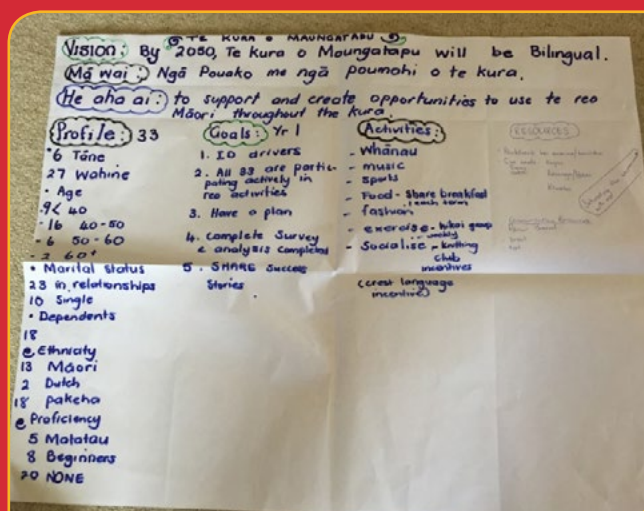 TE KURA O MAUNGATAPU
Vision: By 2050, Te kura o Maungatapu will be Bilingual.
Mā wai: Ngā Pouako me ngā poumahi o te kura.
He aha ai: to support and create opportunities to use te reo
Māori throughout the kura.
Profile: 33
6 Tāne
27 Wahine
• Age
-9 < 40
-16 40-50
-6 50-60
-2 60+
• Marital Status
23 in relationships
10 Single
• Dependents
18
Ethnicity
13 Māori
2 Dutch
18 pakeha
Proficiency
5 Matatau
8 Beginners
20 NONE
Goals: Yr 1
1. ID drivers
2. All 33 are partic-
pating actively in
reo activities
3. Have a plan
4. complete Survey
& analysis completed
5. SHARE Success
Stories
Activities:
- Whānau
- music
- sports
- Food - Share breakfast
each term
- fashion
- exercise - hikoi group
weekly
- Socialise - knitting
club
incentives
(crest language
incentive)
RESOURCES